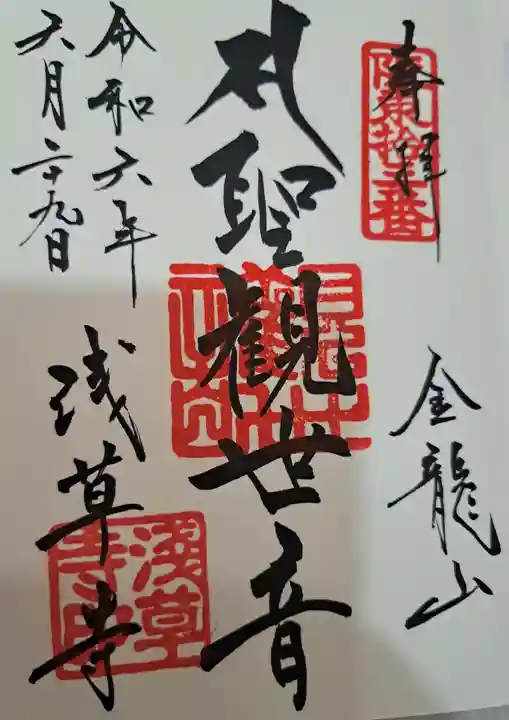 奉拝
坂東拾三番
金龍山
聖観世音
浅草寺
令和六年
六月二十九日
浅草寺印